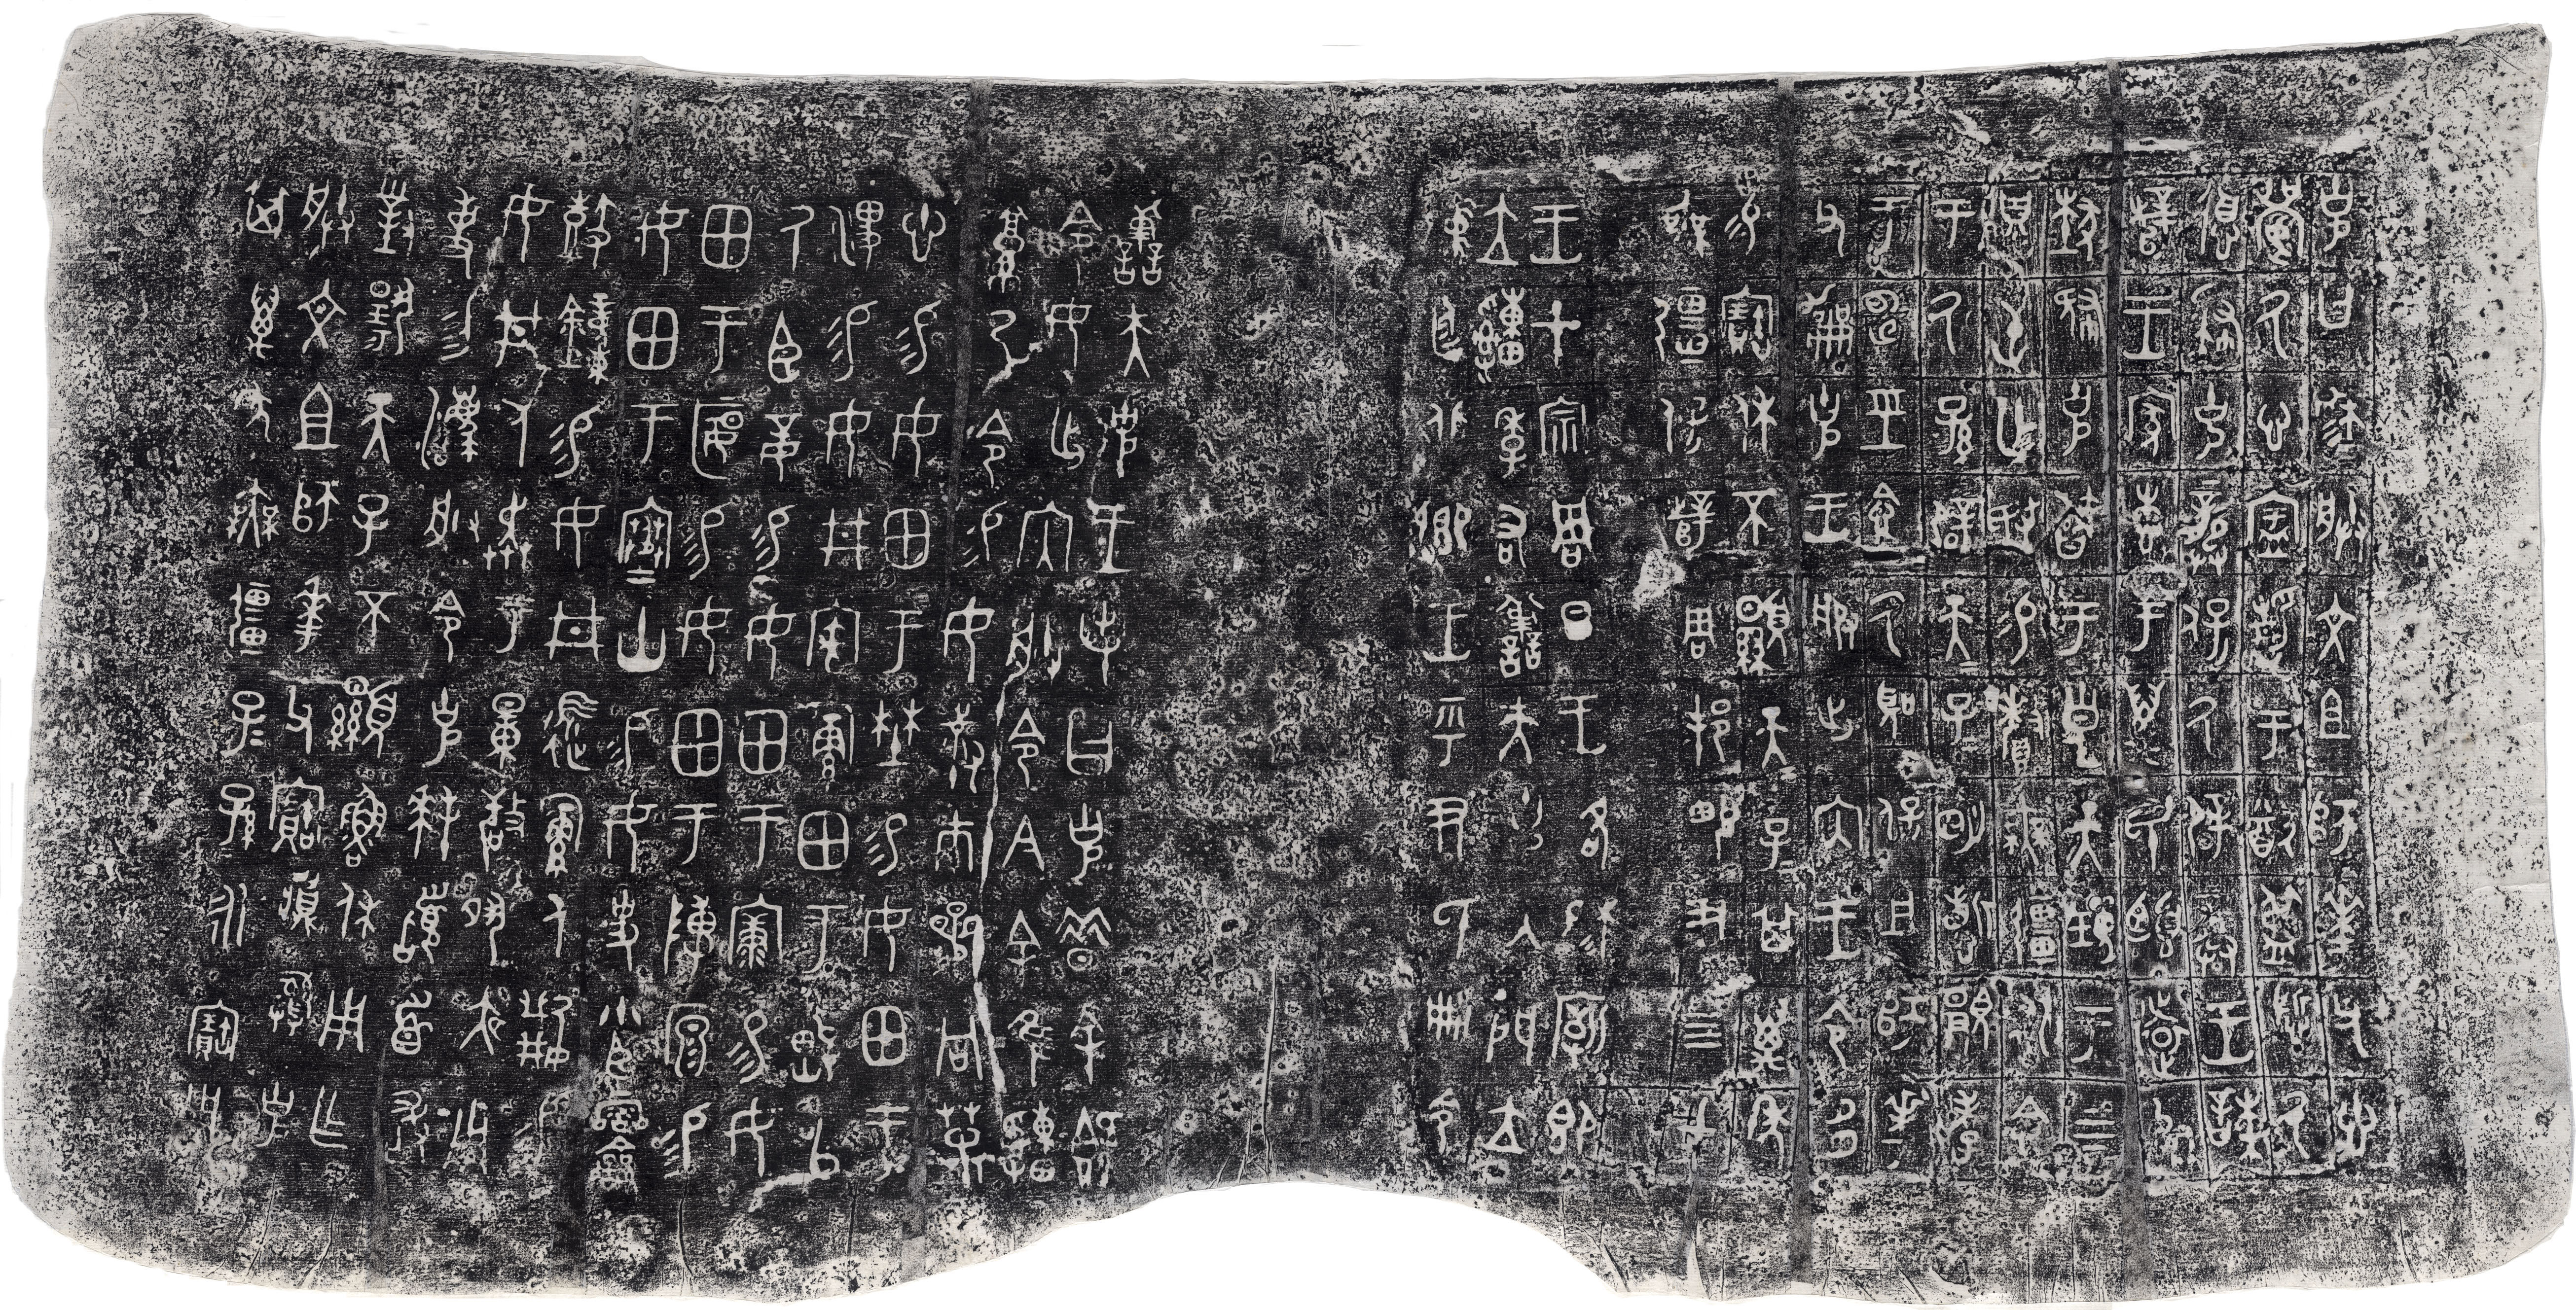 克曰穆穆朕文且師華父悤
襄氒心宁静于猷盄哲氒
德肆克龏保氒辟龏王諫
辥王家叀于萬民柔遠能
肆克于皇天頊于上下
屯亡敃易釐無彊永念
于氒孫辟天子天子明哲覭孝
于申巠念氒聖保且師華
父克王服出内王令多
易寶休不顯天子天子其萬年
無彊保辥周邦畯尹四方
王才宗周旦王各穆廟即
立季右善夫克入門立
中廷北卿王乎尹氏册令
善夫克王若曰克昔余既
令女出内朕令今余隹
乃令易女叔巿參冋
悤易女田于埜易女田于
渒易女井家田于以
氒臣妾易女田于康易女
田于匽易女田于原易
女田于寒山易女史小臣
霝龠鼓鐘易女井人易
女井人奔于量敬夙夜用
事勿灋朕令克拜首敢
對揚天子不顯魯休用乍
朕文且師華父寶彝克
其萬年無彊子子孫孫永寶用